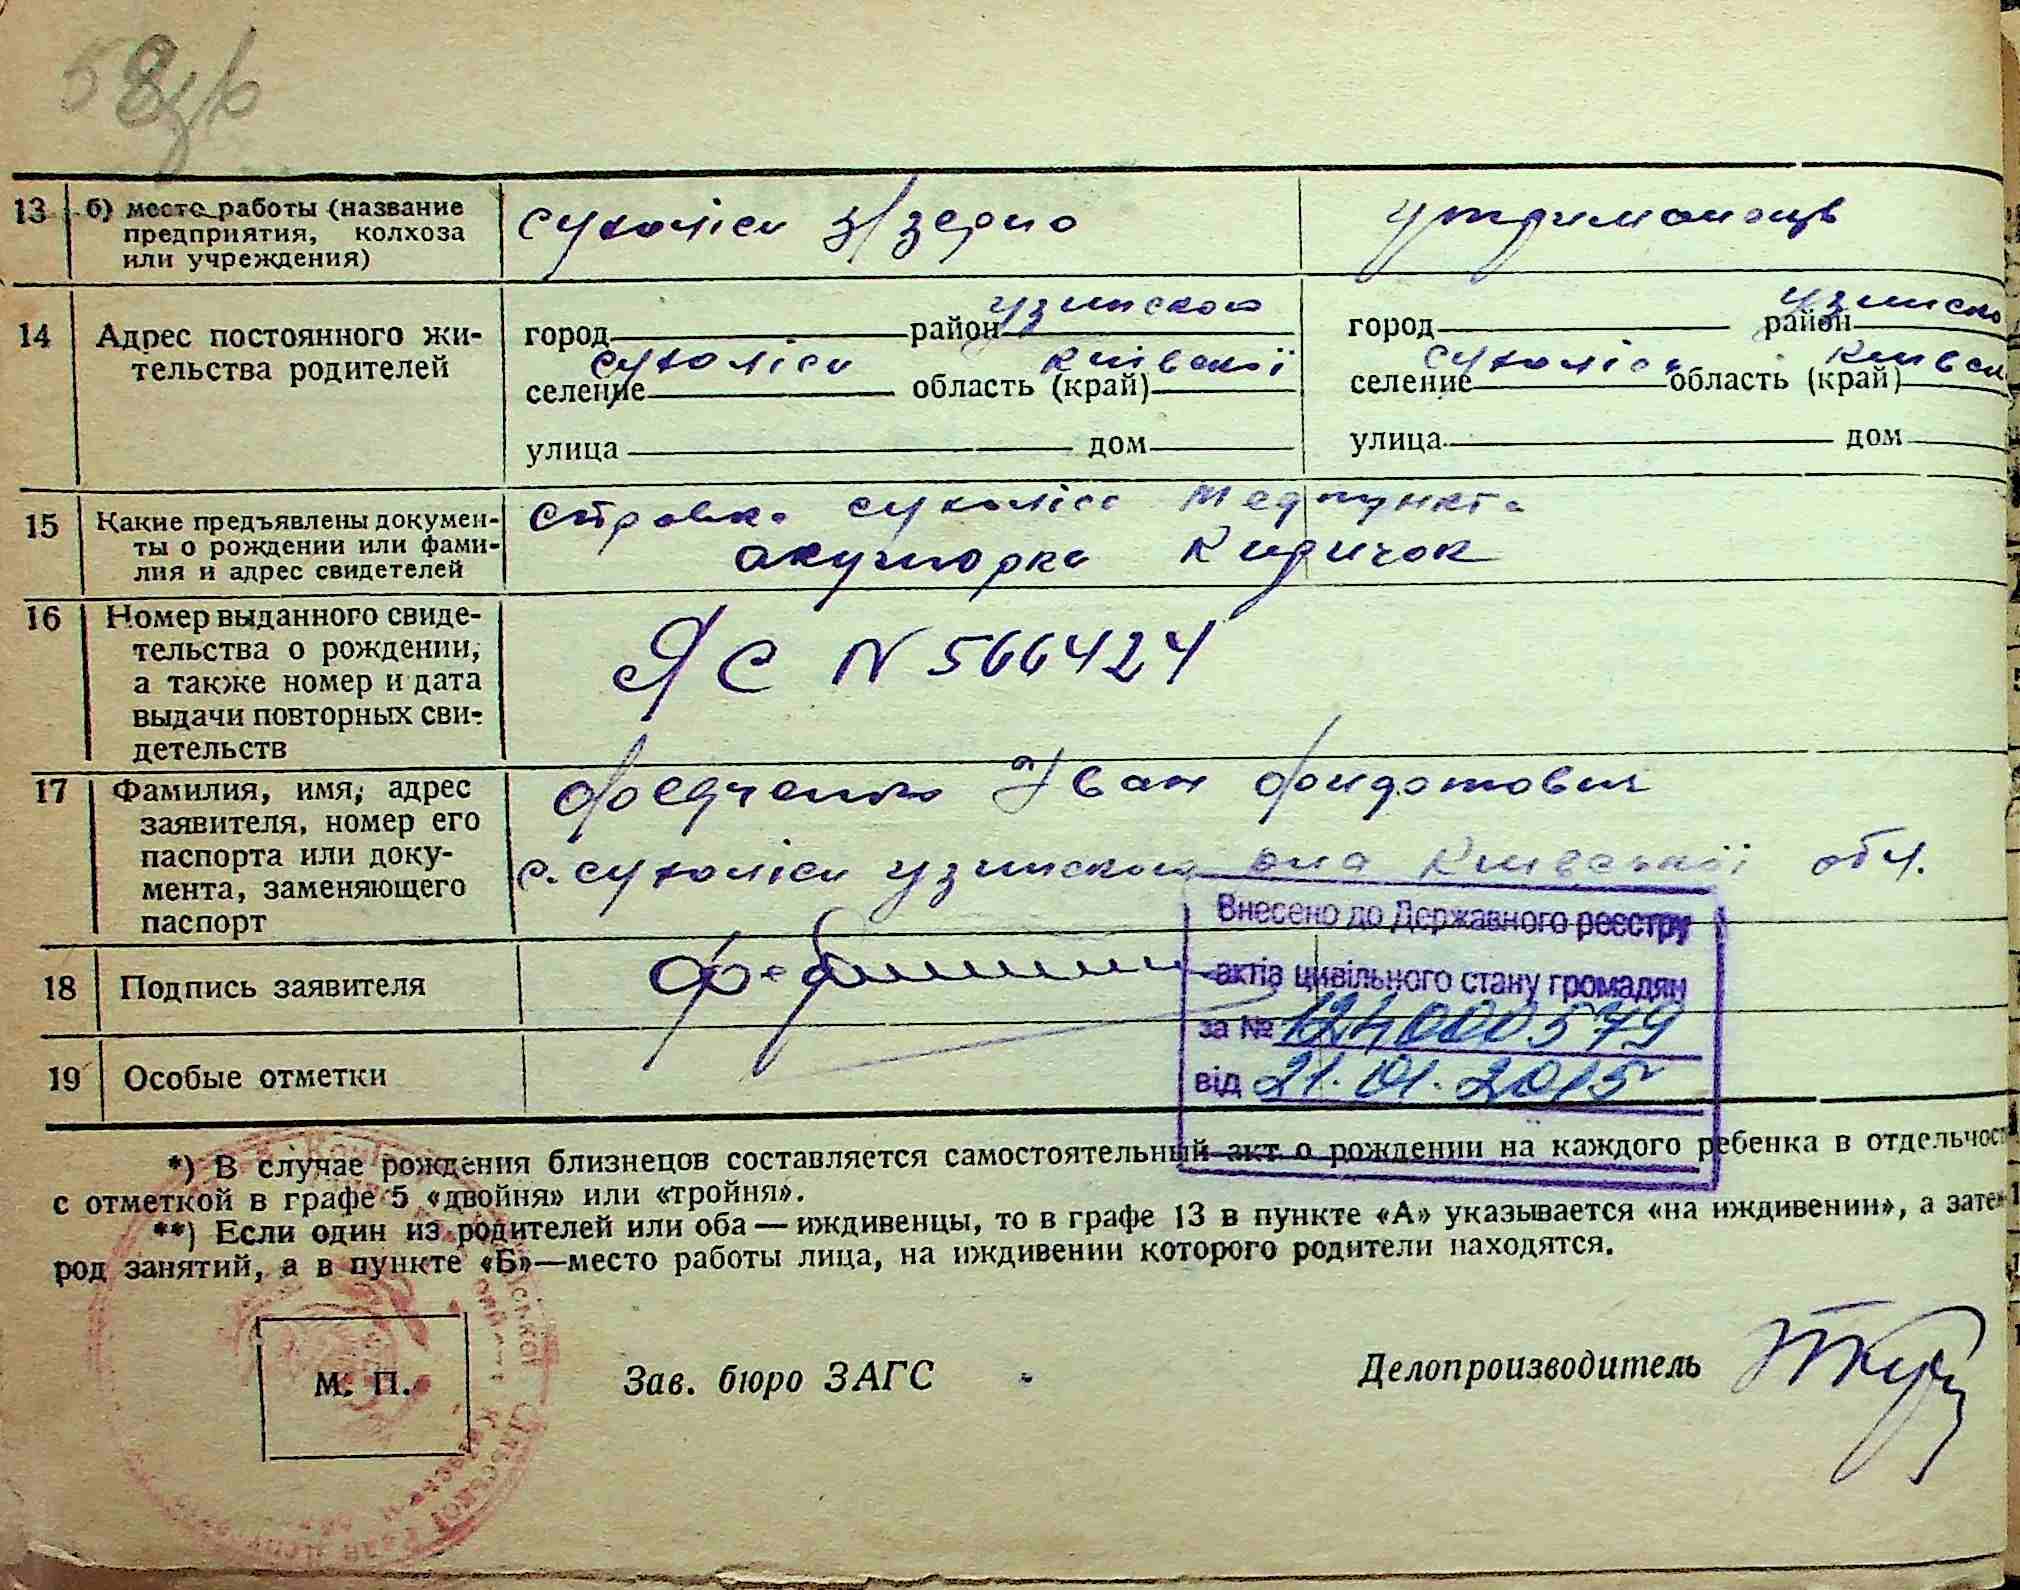 13 б) место работы (название предприятия, колхоза или учреждения) сухоліси з/зерно утриманець
14 Адрес постоянного жительства родителей
город район узинского город район узинско
селение сухоліси область (край) київскої селение сухоліси область (край) київск
улица дом улица дом
15 Какие предъявлены документы о рождении или фамилия и адрес свидетелей
справка сухоліс медпункта
акушорка
16 Номер выданного свидетельства о рождении, а также номер и дата выдачи повторных свидетельств
ЯС N 566424
17 Фамилия, имя, адрес заявителя, номер его паспорта или документа, заменяющего паспорт
Федченко Іван Фидотович
с. сухоліси узинского р-на Київскої обл.
18 Подпись заявителя
Внесено до Державного реєстру
актів цивільного стану громадян
за № 124000579
від 21.01.2015
19 Особые отметки
*) В случае рождения близнецов составляется самостоятельный акт о рождении на каждого ребенка в отдельност
с отметкой в графе 5 «двойня» или «тройня».
**) Если один из родителей или оба — иждивенцы, то в графе 13 в пункте «А» указывается «на иждивении», а зате
род занятий, а в пункте «Б»—место работы лица, на иждивении которого родители находятся.
М. П. Зав. бюро ЗАГС Делопроизводитель